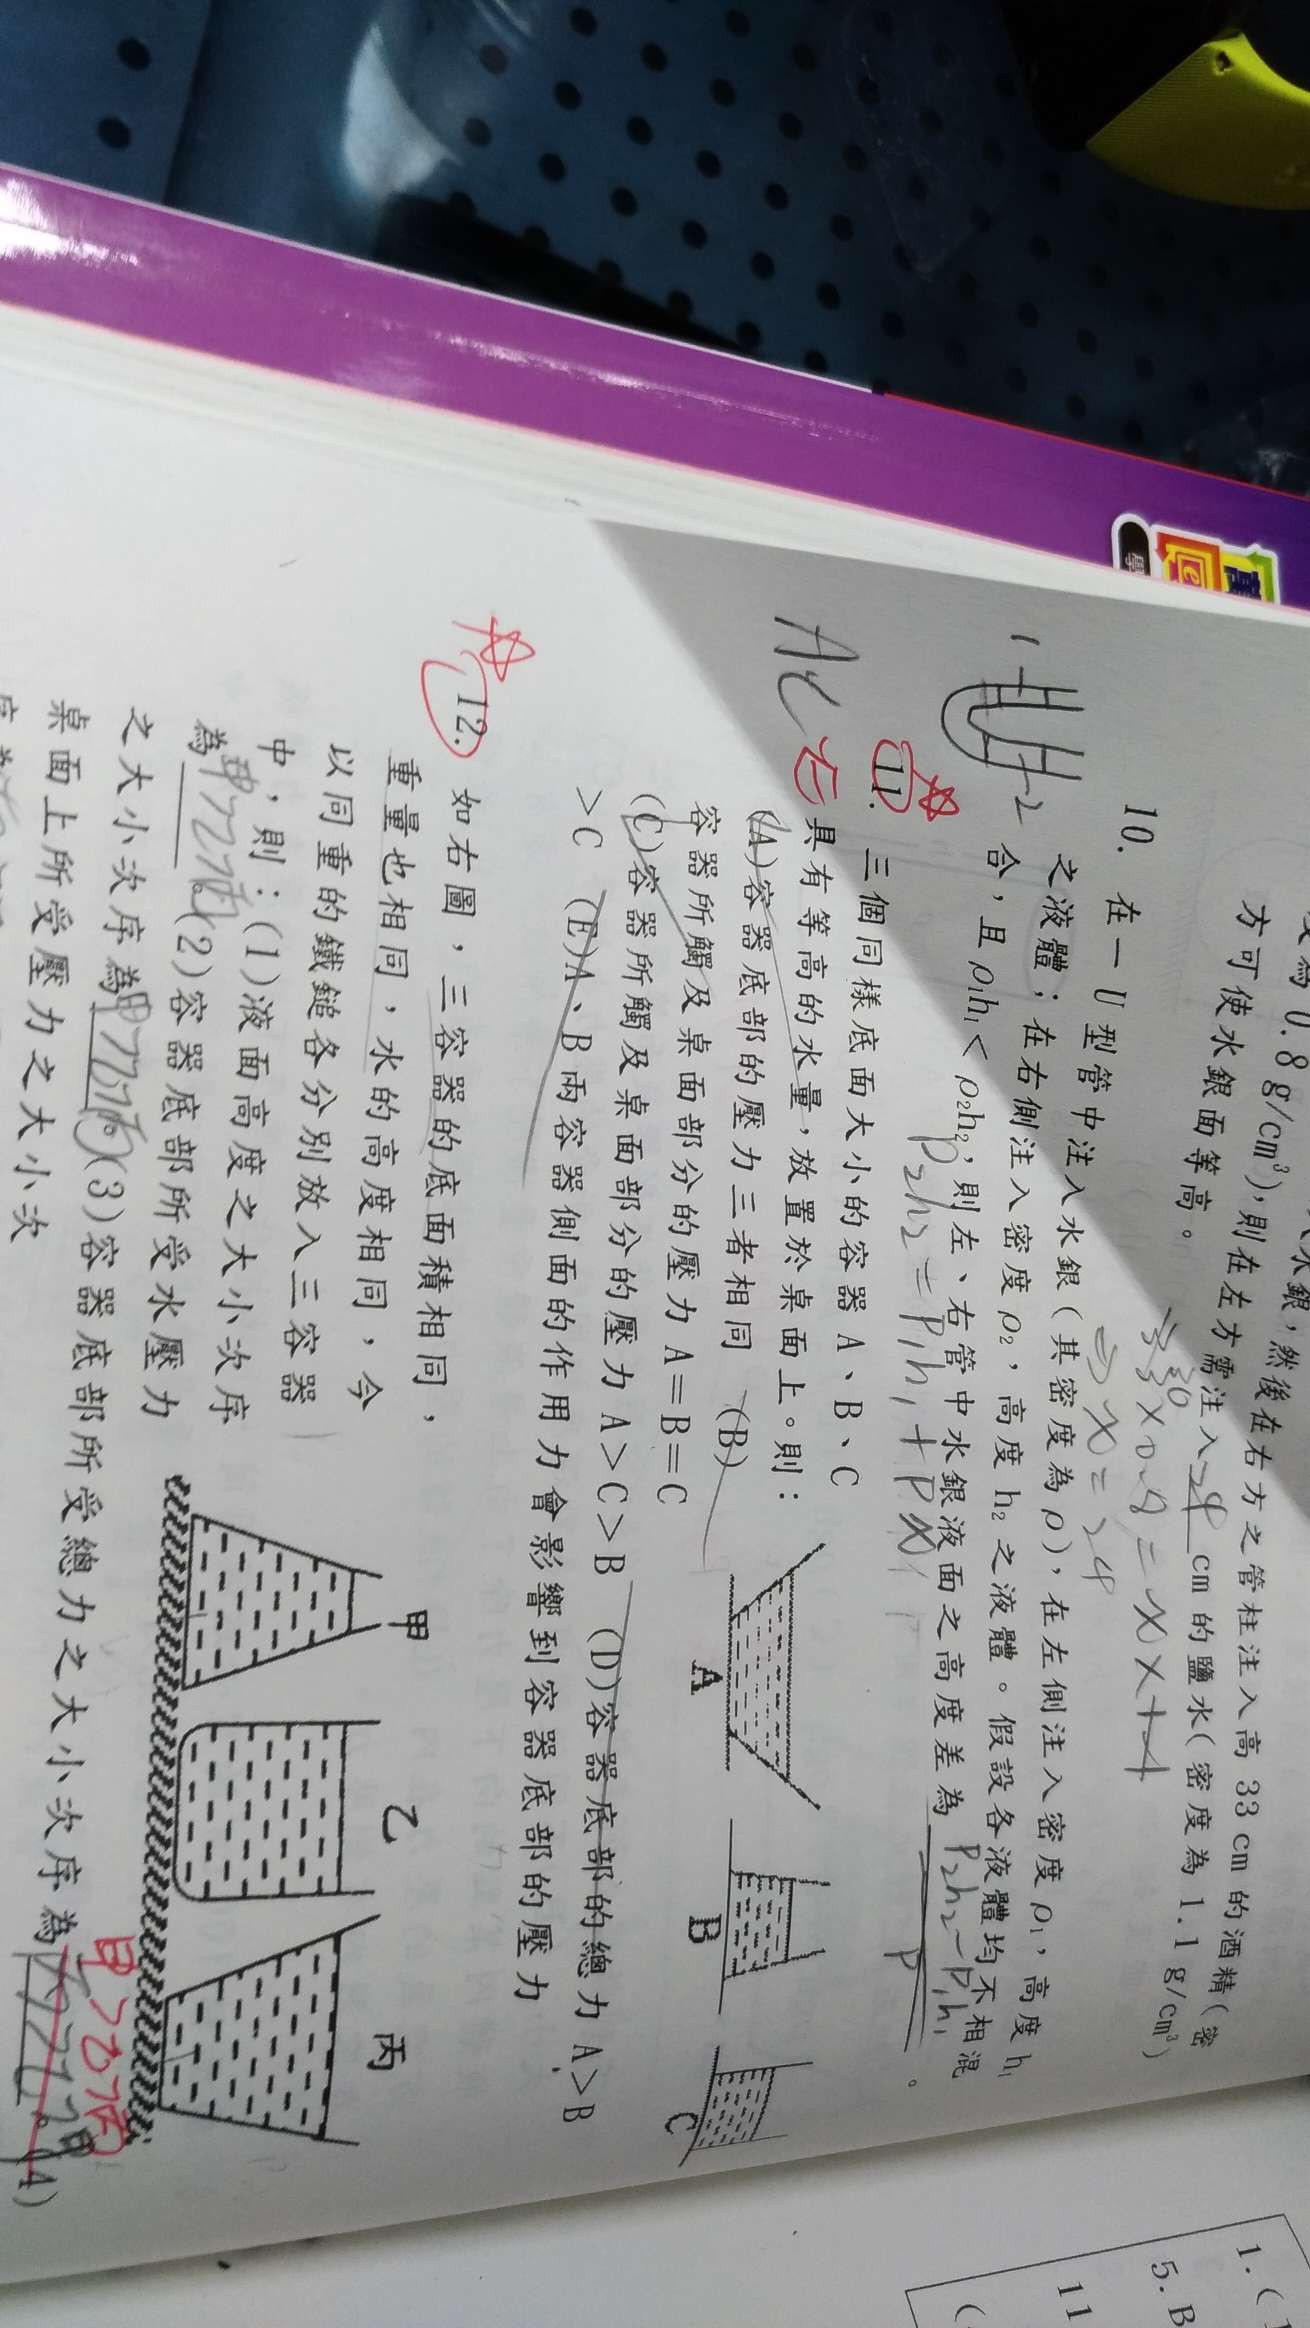 方可使水銀面等高。
為 0.8 g/cm³),則在左方需注入 24 cm 的鹽水(密度為 1.1 g/cm³)
水銀,然後在右方之管柱注入高 33 cm 的酒精(密
10. 在一 U 型管中注入水銀(其密度為 ρ),在左側注入密度 ρ₁,高度 h₁
之液體;在右側注入密度 ρ₂,高度 h₂ 之液體。假設各液體均不相混
合,且 ρ₁h₁ < ρ₂h₂,則左、右管中水銀液面之高度差為 P₂h₂-P₁h₁ / P 。
⇒ x = 24
P₂h₂ = P₁h₁ + Px
1
2
AC
11. 三個同樣底面大小的容器 A、B、C
具有等高的水量,放置於桌面上。則:
(A)容器底部的壓力三者相同 (B)
容器所觸及桌面部分的壓力 A=B=C
(C)容器所觸及桌面部分的壓力 A>C>B (D)容器底部的總力 A>B
>C (E)A、B兩容器側面的作用力會影響到容器底部的壓力
A
B
C
12. 如右圖,三容器的底面積相同,
重量也相同,水的高度相同,今
以同重的鐵鎚各分別放入三容器
中,則:(1)液面高度之大小次序
為甲乙丙(2)容器底部所受水壓力
之大小次序為甲乙丙(3)容器底部所受總力之大小次序為 甲乙丙 。(4)
桌面上所受壓力之大小次
甲
乙
丙
1.(
5. B
11